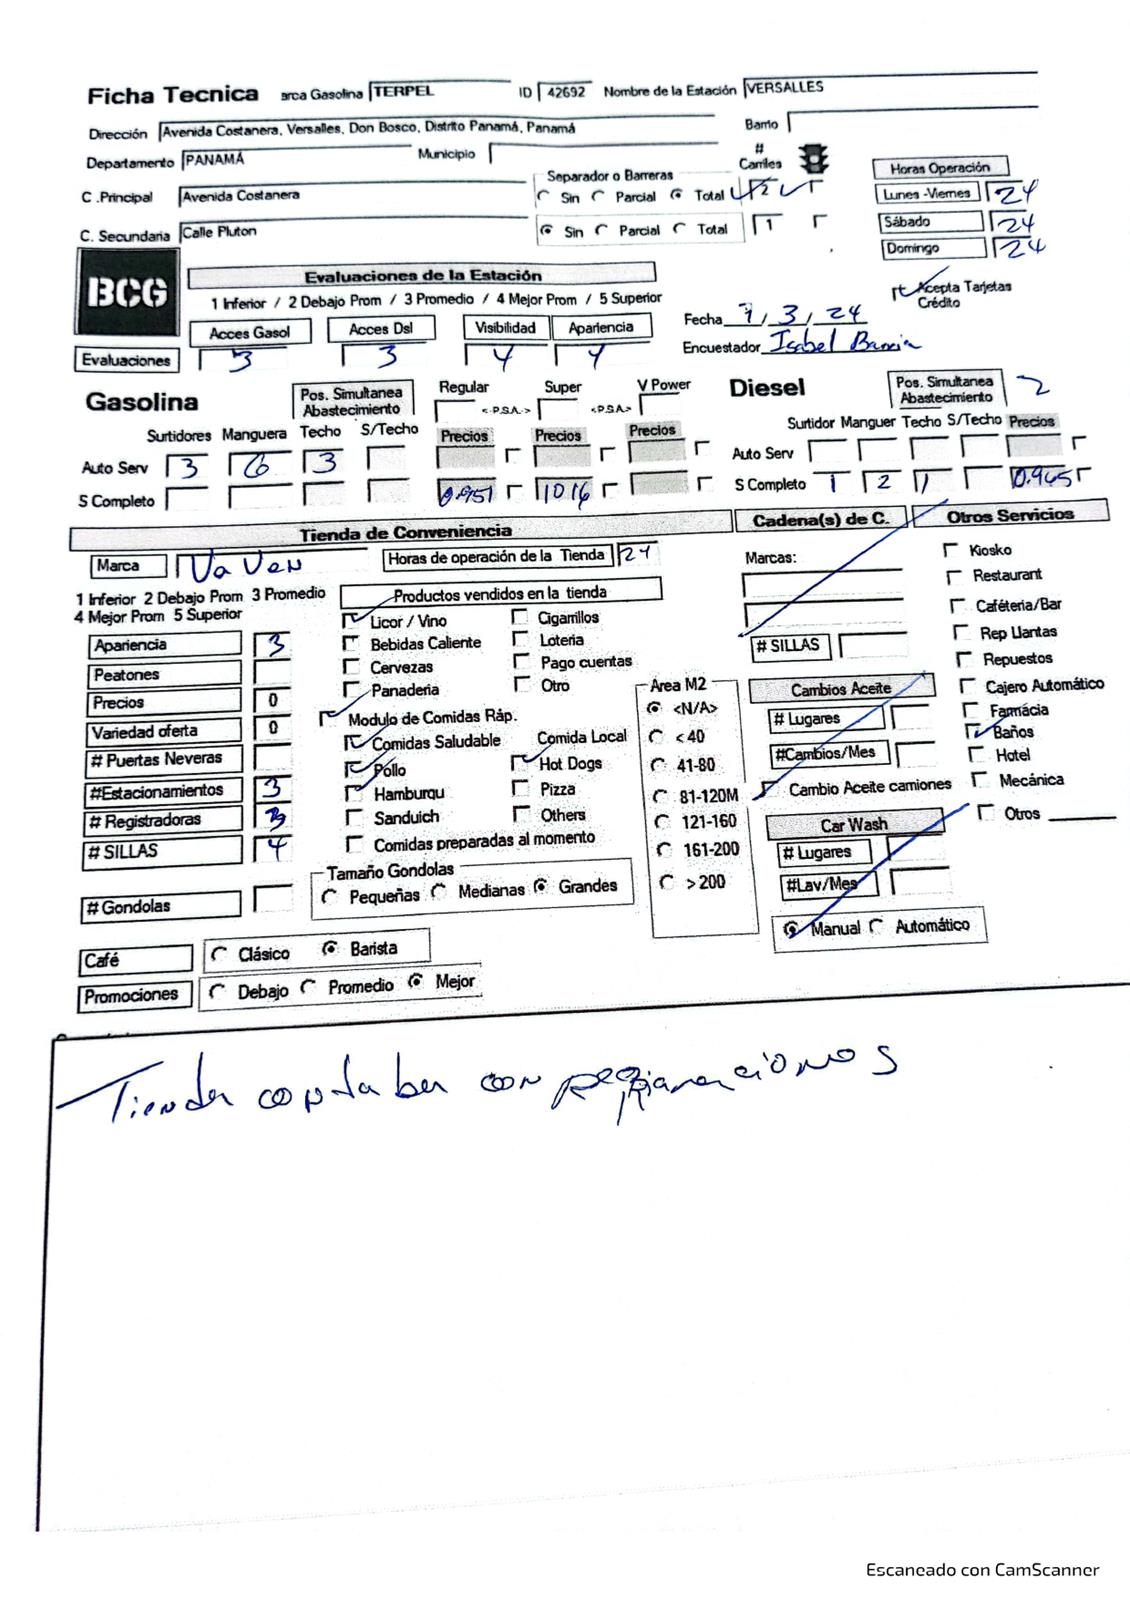 Ficha Tecnica arca Gasolina TERPEL ID 42692 Nombre de la Estación VERSALLES
Dirección Avenida Costanera, Versalles, Don Bosco, Distrito Panamá, Panamá Barrio
Departamento PANAMÁ Municipio # Carriles
Horas Operación
C .Principal Avenida Costanera Separador o Barreras Sin Parcial Total 2 Lunes -Viernes 24
C. Secundaria Calle Pluton Sin Parcial Total 1 Sábado 24
Domingo 24
BCG
Evaluaciones de la Estación
1 Inferior / 2 Debajo Prom / 3 Promedio / 4 Mejor Prom / 5 Superior
Acepta Tarjetas Crédito
Acces Gasol Acces Dsl Visibilidad Apariencia Fecha 7/3/24
Evaluaciones 3 3 4 4 Encuestador Isabel
Gasolina Pos. Simultanea Abastecimiento Regular <.P.S.A.> Super <.P.S.A.> V Power
Surtidores Manguera Techo S/Techo Precios Precios Precios
Auto Serv 3 6 3
S Completo 0.951 1016
Diesel Pos. Simultanea Abastecimiento 2
Surtidor Manguer Techo S/Techo Precios
Auto Serv
S Completo 1 2 1 0.965
Tienda de Conveniencia Cadena(s) de C. Otros Servicios
Marca Va Ven Horas de operación de la Tienda 24
1 Inferior 2 Debajo Prom 3 Promedio
4 Mejor Prom 5 Superior
Apariencia 3
Peatones
Precios 0
Variedad oferta 0
# Puertas Neveras
#Estacionamientos 3
# Registradoras 3
# SILLAS 4
# Gondolas
Productos vendidos en la tienda
Licor / Vino Cigarrillos
Bebidas Caliente Loteria
Cervezas Pago cuentas
Panaderia Otro
Modulo de Comidas Ráp.
Comidas Saludable Comida Local
Pollo Hot Dogs
Hamburqu Pizza
Sanduich Others
Comidas preparadas al momento
Tamaño Gondolas
Pequeñas Medianas Grandes
Área M2
<N/A>
< 40
41-80
81-120M
121-160
161-200
> 200
Marcas:
# SILLAS
Cambios Aceite
# Lugares
#Cambios/Mes
Cambio Aceite camiones
Car Wash
# Lugares
#Lav/Mes
Manual Automático
Kiosko
Restaurant
Caféteria/Bar
Rep Llantas
Repuestos
Cajero Automático
Farmácia
Baños
Hotel
Mecánica
Otros
Café Clásico Barista
Promociones Debajo Promedio Mejor
Tienda contaba con
Escaneado con CamScanner